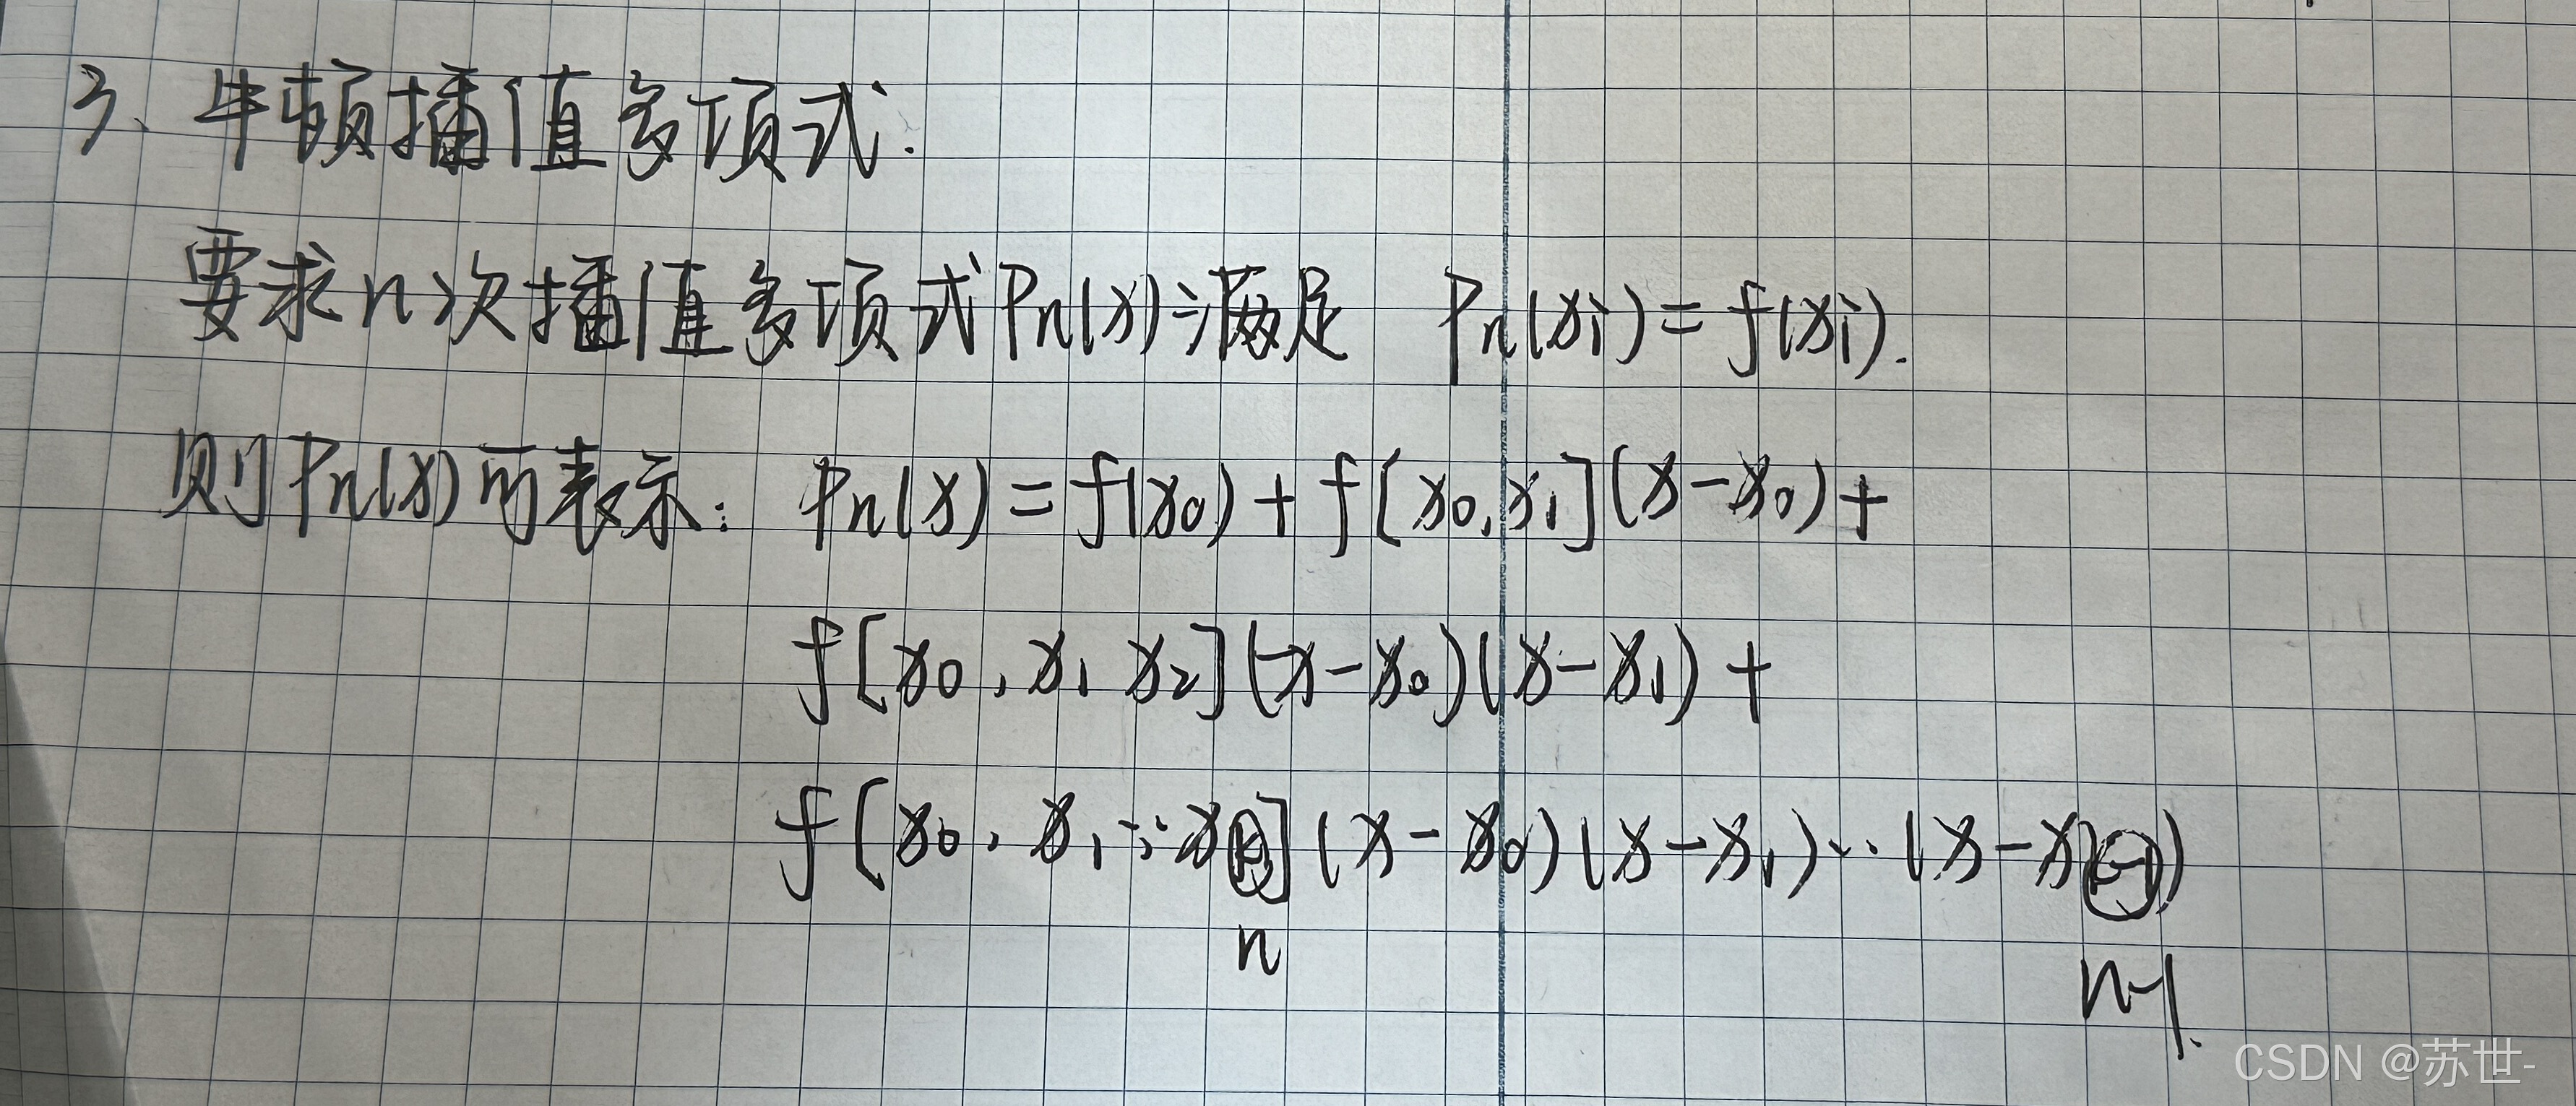 3、牛顿插值多项式.
要求n次插值多项式Pn(x)满足 Pn(xi)=f(xi).
则Pn(x)可表示: Pn(x)=f(x0)+f[x0,x1](x-x0)+
f[x0,x1 x2](x-x0)(x-x1)+
f[x0,x1…x](x-x0)(x-x1)…(x-x)
n
n-1.
CSDN @苏世-